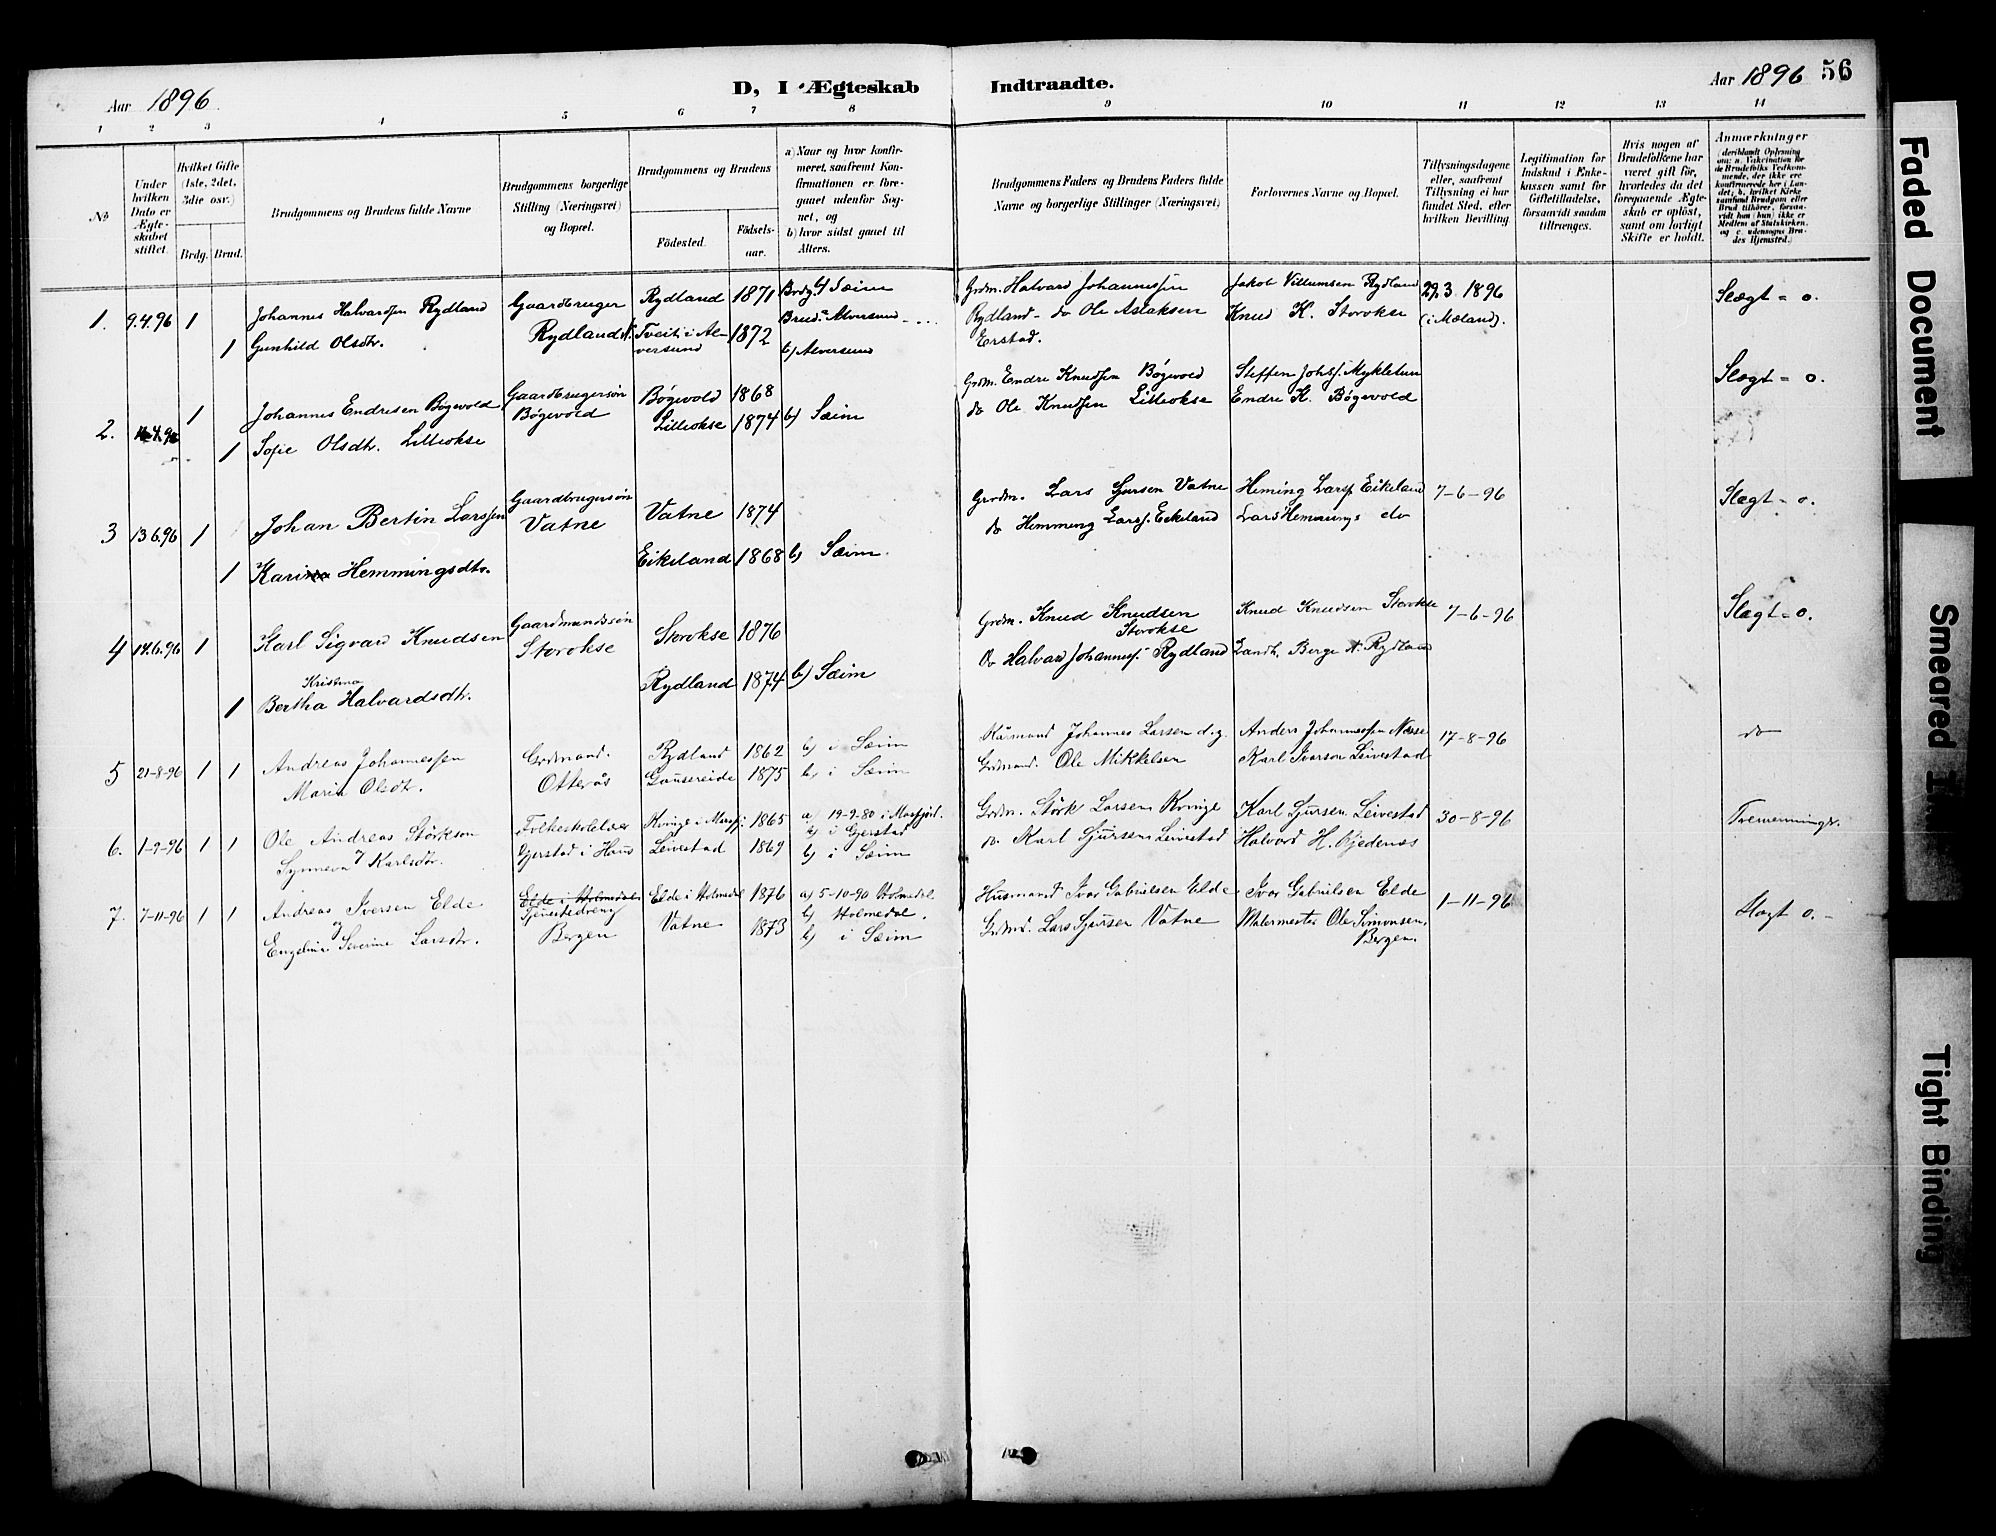 56
Aar 1896
D, I Ægteskab Indtraadte.
Aar 1896
1 2 3 4 5 6 7 8 9 10 11 12 13 14
№
Under hvilken Dato er Ægteskabet stiftet.
Hvilket Gifte (1ste, 2det, 3die osv.)
Brdg. Brud.
Brudgommens og Brudens fulde Navne
Brudgommens borgerlige Stilling (Næringsvei) og Bopæl.
Brudgommens og Brudens
Fødested.
Fødselsaar.
a) Naar og hvor konfirmeret, saafremt Konfirmationen er foregaaet udenfor Sognet, og
b) hvor sidst gaaet til Alters.
Brudgommens Faders og Brudens Faders fulde Navne og borgerlige Stillinger (Næringsvei)
Forlovernes Navne og Bopæl.
Tillysningsdagene eller, saafremt Tillysning ei har fundet Sted, efter hvilken Bevilling.
Legitimation for Indskud i Enkekassen samt for Giftetilladelse, forsaavidt saadan tiltrænges.
Hvis nogen af Brudefolkene har været gift før, hvorledes da det foregaaende Ægteskab er opløst, samt om lovligt Skifte er holdt.
Anmærkninger (deriblandt Oplysning om: a. Vakcination for de Brudefolks Vedkommende, der ikke ere konfirmerede her i Landet; b. hvilket Kirkesamfund Brudgom eller Brud tilhører, forsaavidt han (hun) ikke er Medlem af Statskirken, og c. udensogns Brudes Hjemsted.)
1. 9.4.96 1 Johannes Halvardsen Rydland Gaardbruger Rydland 1871 Brdg. b) Sæim Grdm. Halvard Johannessen Jakob Villumsen Rydland 29.3.1896 Slægt = o.
1 Gunhild Olsdtr. Rydland Tveit i Alversund 1872 Brud. Alversund Rydland - do Ole Aslaksen Knud K. Storokse (i Mæland).
b) Alversund Erstad.
2. 1 Johannes Endresen Bøgevold Gaardbrugersøn Bøgevold 1868 Grdm. Endre Knudsen Bøgevold Steffen Johs. Mykletun Slægt = o.
1 Sofie Olsdtr. Lilleokse Bøgevold Lilleokse 1874 b) Sæim do Ole Knudsen Lilleokse Endre K. Bøgevold
3 13.6.96 1 Johan Bertin Larssen Gaardbrugersøn Vatne 1874 Grdm. Lars Sjursen Vatne Heming Larss. Eikeland 7-6-96 Slægt = o.
1 Kari Hemmingsdtr. Vatne Eikeland 1868 b) Sæim. do Hemming Larss. Eikeland Lars Hemmings do
4 14.6.96 1 Karl Sigvard Knudsen Gaardmandssøn Storokse 1876 Grdm. Knud Knudsen Storokse Knud Knudsen Storokse 7-6-96 Slægt = o.
1 Bertha Kristina Halvardsdtr. Storokse Rydland 1874 b) Sæim do Halvard Johanness. Rydland Landh. Berge A. Rydland
5 21-8-96 1 1 Andreas Johannessen Grdmand. Rydland 1862 b) i Sæim Johannes Larsen d.g. Anders Johannessen Næsse 17-8-96 do
Maria Olsdtr. Otterås Gausereide 1875 b) i Sæim Grdmand. Ole Mikkelsen Karl Ivarson Leivestad
6. 1-9-96 1 1 Ole Andreas Størkson Folkeskolelærer Kvinge i Masfj. 1865 a) 19-9-80 i Masfjord. Grdm. Størk Larsen Kvinge Karl Sjursen Leivestad 30-8-96 Tremenninger.
b) i Gjerstad
Synneva Karlsdtr. Gjerstad i Haus Leivestad 1869 b) i Sæim do. Karl Sjursen Leivestad Halvard H. Gjedenæs
7. 7-11-96 1 1 Andreas Iversen Elde Elde i Holmedal Elde i Holmedal 1876 a) 5-10-90 Holmedal Husmand Ivar Gabrielsen Elde Ivar Gabrielsen Elde 1-11-96 Slægt o. -
Tjenestedreng b) Holmedal.
Engeline Severine Larsdtr. Bergen Vatne 1873 b) i Sæim Grdmd. Lars Sjursen Vatne Malermester Ole Simonsen, Bergen.
Faded Document
Smeared
Tight Binding